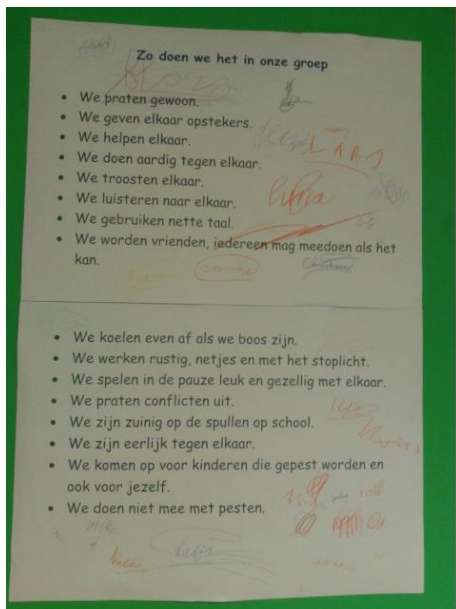 Zo doen we het in onze groep
• We praten gewoon.
• We geven elkaar opstekers.
• We helpen elkaar.
LARS
• We doen aardig tegen elkaar.
• We troosten elkaar.
• We luisteren naar elkaar.
• We gebruiken nette taal.
• We worden vrienden, iedereen mag meedoen als het
kan.
• We koelen even af als we boos zijn.
• We werken rustig, netjes en met het stoplicht.
• We spelen in de pauze leuk en gezellig met elkaar.
• We praten conflicten uit.
• We zijn zuinig op de spullen op school.
• We zijn eerlijk tegen elkaar.
• We komen op voor kinderen die gepest worden en
ook voor jezelf.
• We doen niet mee met pesten.